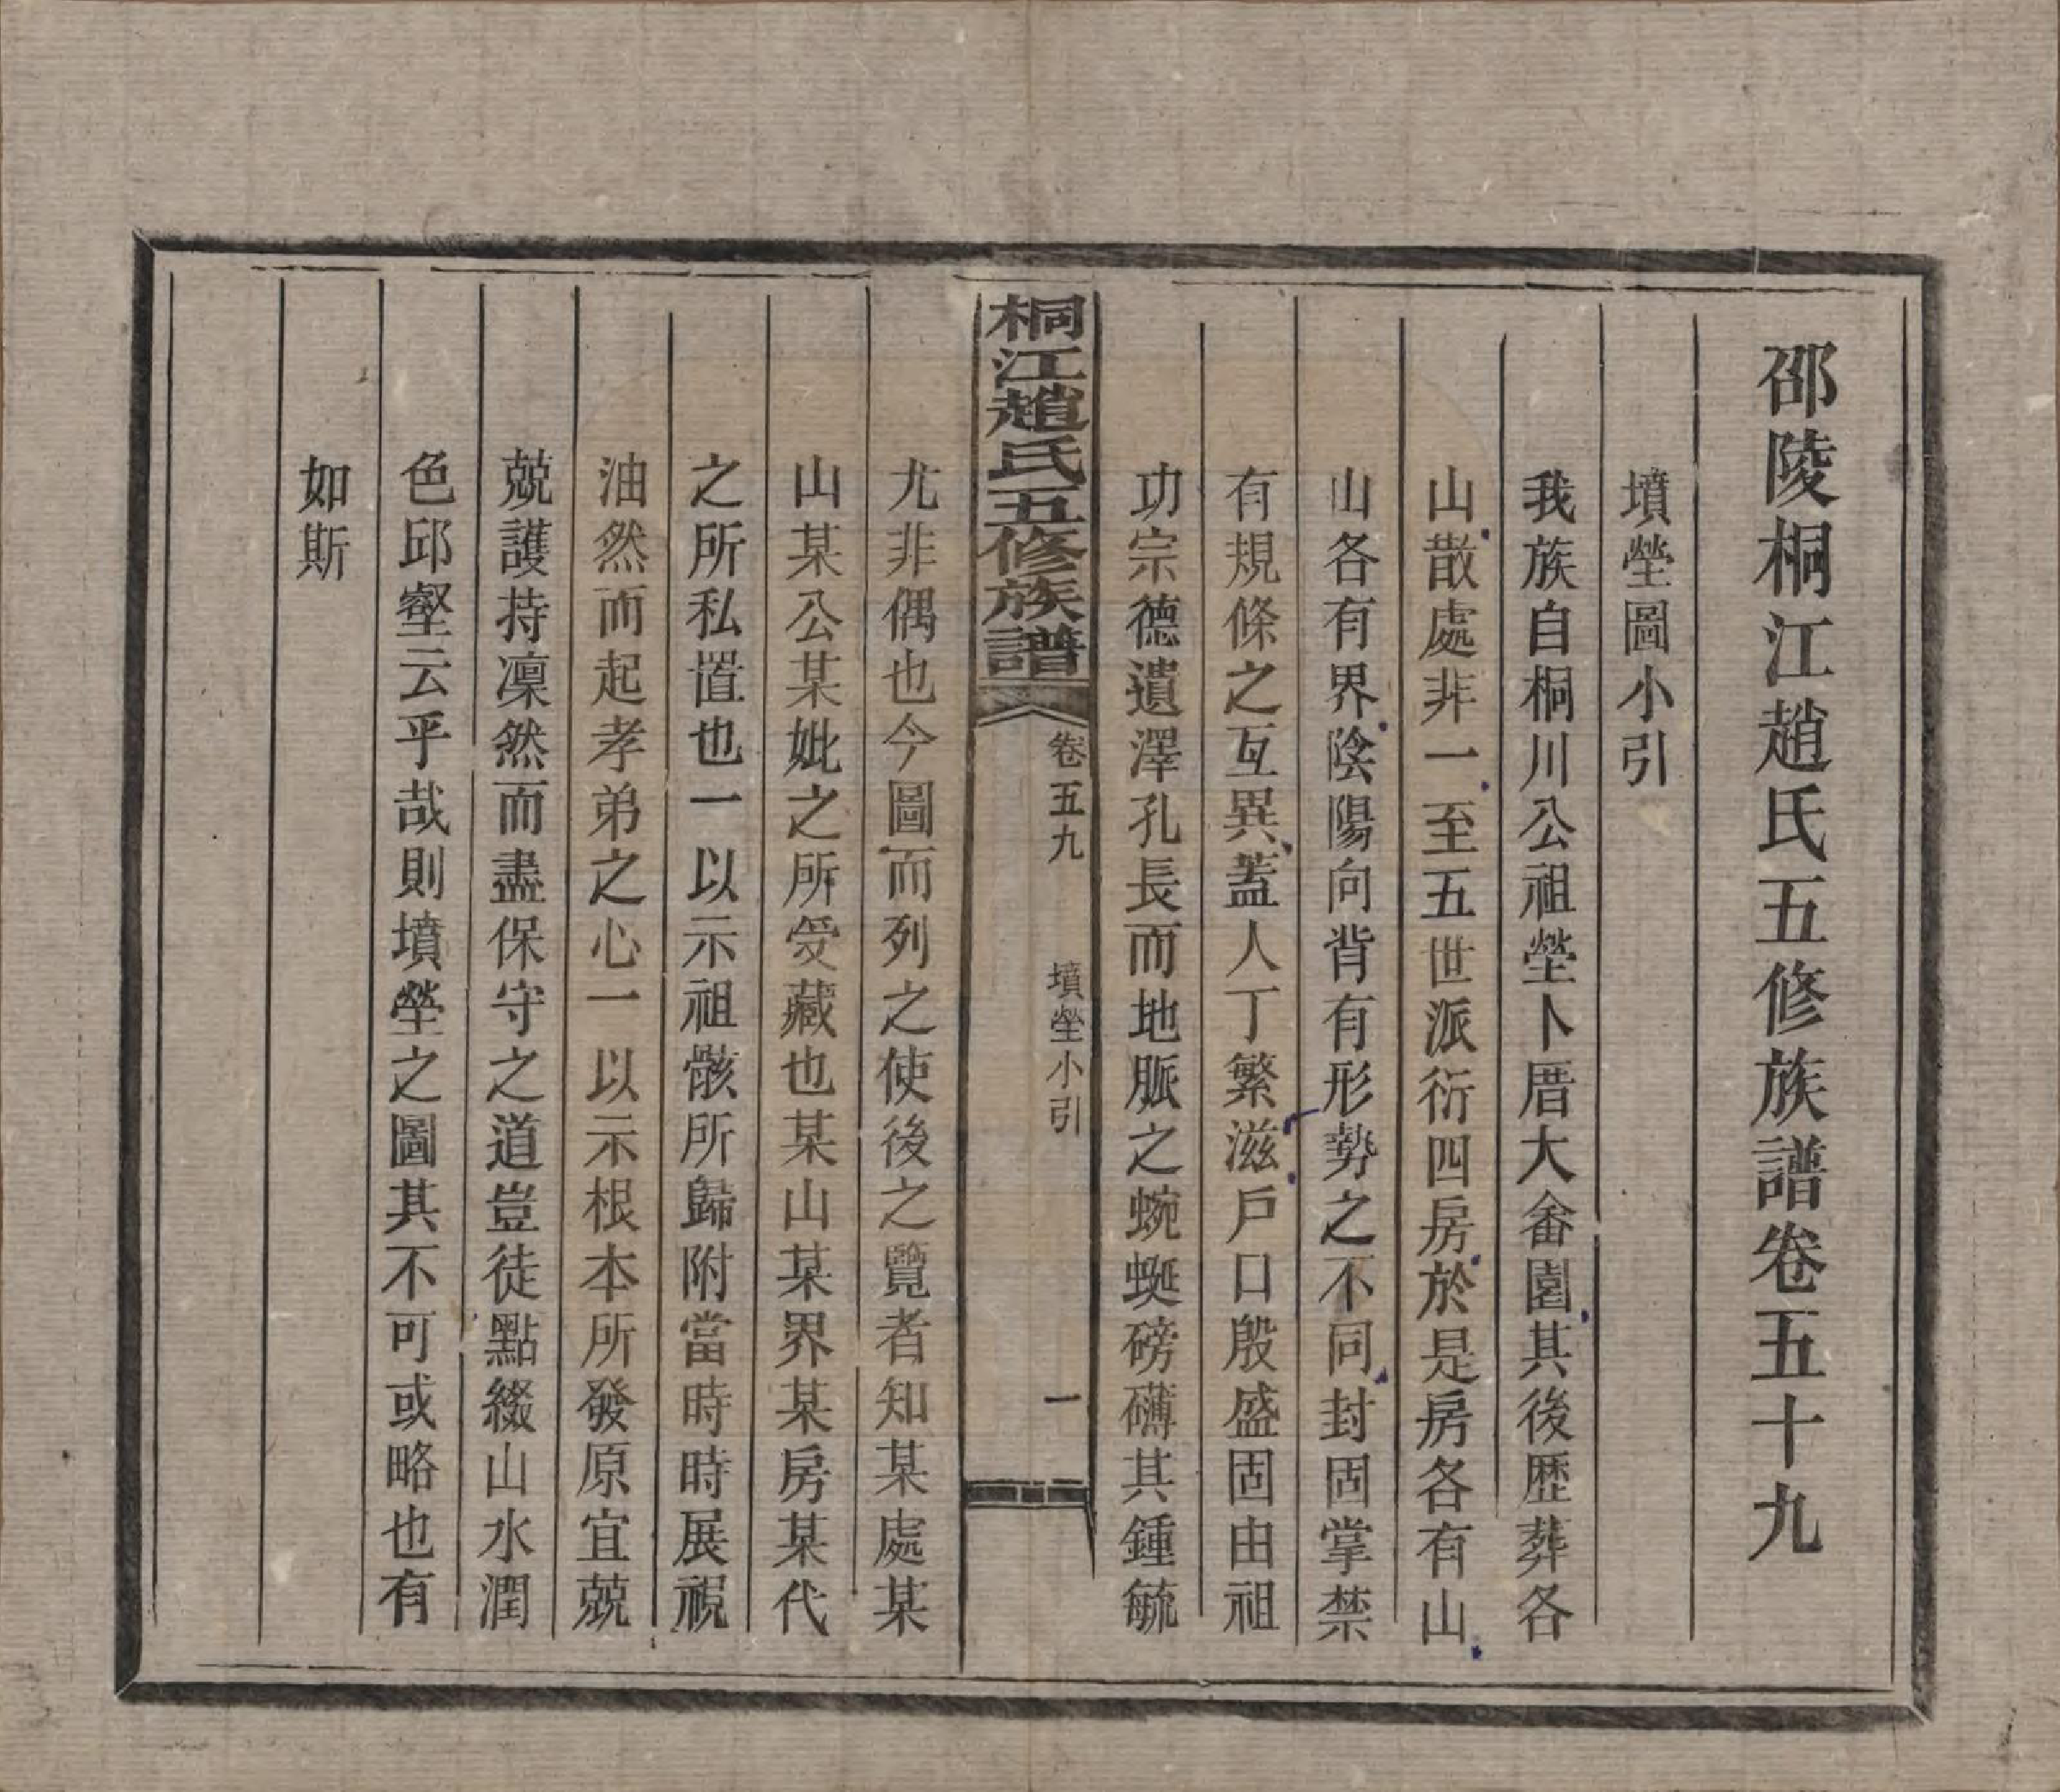 邵陵桐江趙氏五修族譜卷五十九
墳塋圖小引
我族自桐川公祖塋卜厝大畲園其後歷葬各
山散處非一至五世派衍四房於是房各有山
山各有界陰陽向背有形勢之不同封固掌禁
有規條之互異蓋人丁繁滋戶口殷盛固由祖
功宗德遺澤孔長而地脈之蜿蜒磅礴其鍾毓
桐江趙氏五修族譜
卷五九
墳塋小引
一
尤非偶也今圖而列之使後之覽者知某處某
山某公某妣之所受藏也某山某界某房某代
之所私置也一以示祖骸所歸附當時時展視
油然而起孝弟之心一以示根本所發原宜兢
兢護持凜然而盡保守之道豈徒點綴山水潤
色邱壑云乎哉則墳塋之圖其不可或略也有
如斯